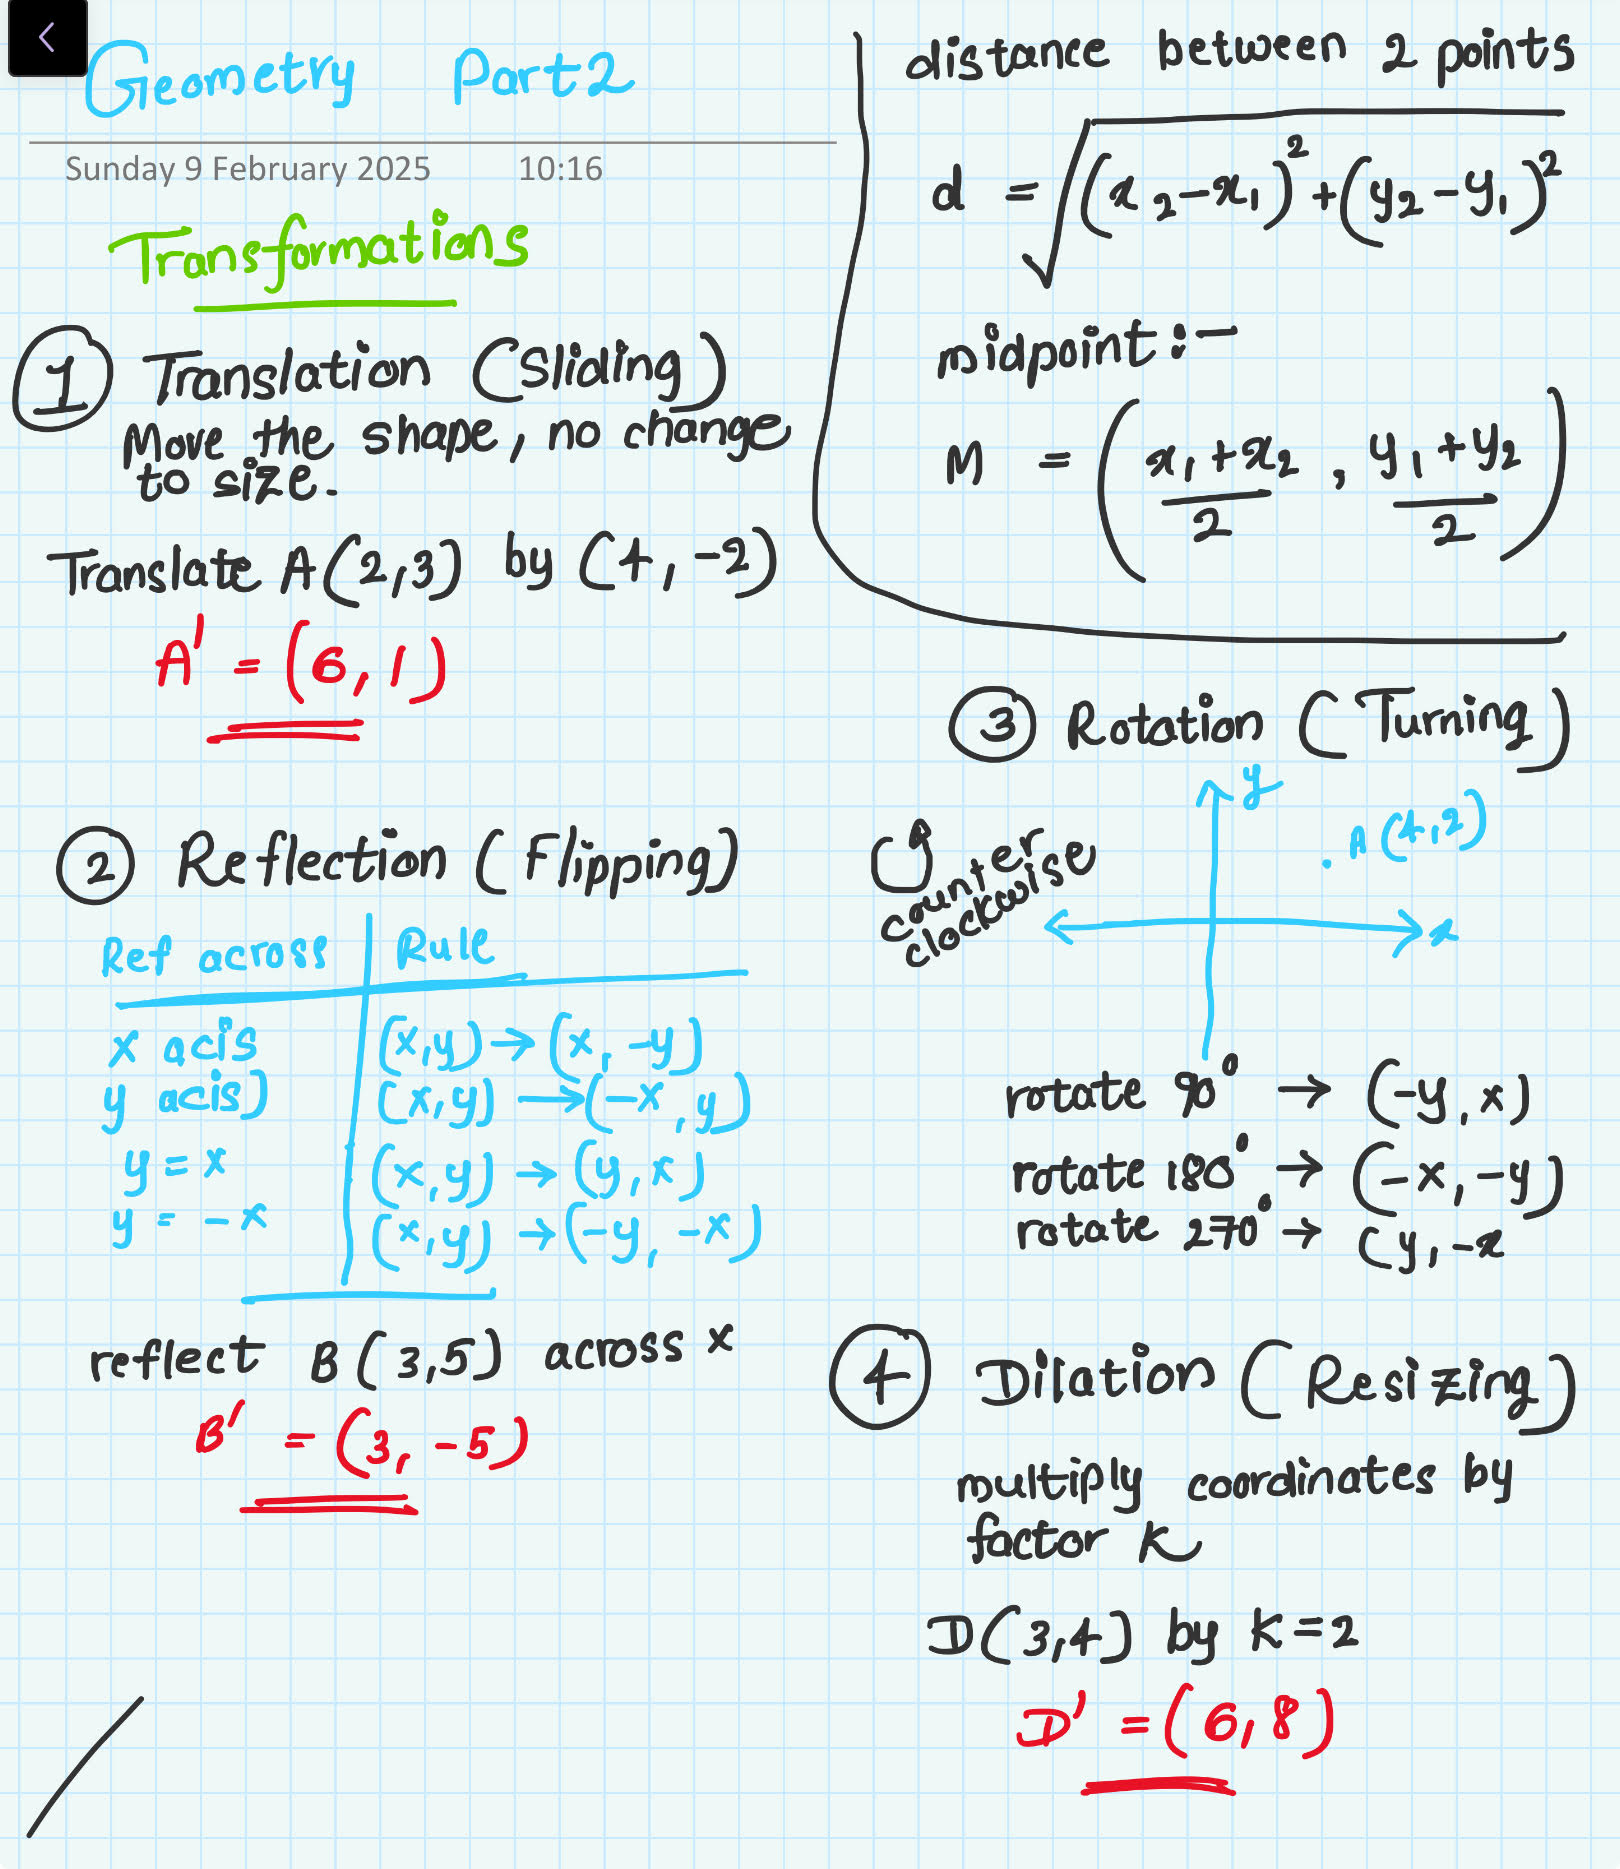 Geometry Part2
Sunday 9 February 2025 10:16
Transformations
1 Translation (Sliding)
Move the shape, no change
to size.
Translate A(2,3) by (4,-2)
A' = (6,1)
2 Reflection (Flipping)
Ref across | Rule
x acis (x,y) → (x,-y)
y acis) (x,y) → (-x,y)
y = x (x,y) → (y,x)
y = -x (x,y) → (-y,-x)
reflect B(3,5) across x
B' = (3,-5)
distance between 2 points
d = √(x₂-x₁)²+(y₂-y₁)²
midpoint:-
M = (x₁+x₂/2, y₁+y₂/2)
3 Rotation (Turning)
y
A(4,2)
counter
clockwise
x
rotate 90° → (-y,x)
rotate 180° → (-x,-y)
rotate 270° → (y,-x
4 Dilation (Resizing)
multiply coordinates by
factor K
D(3,4) by K=2
D' = (6,8)